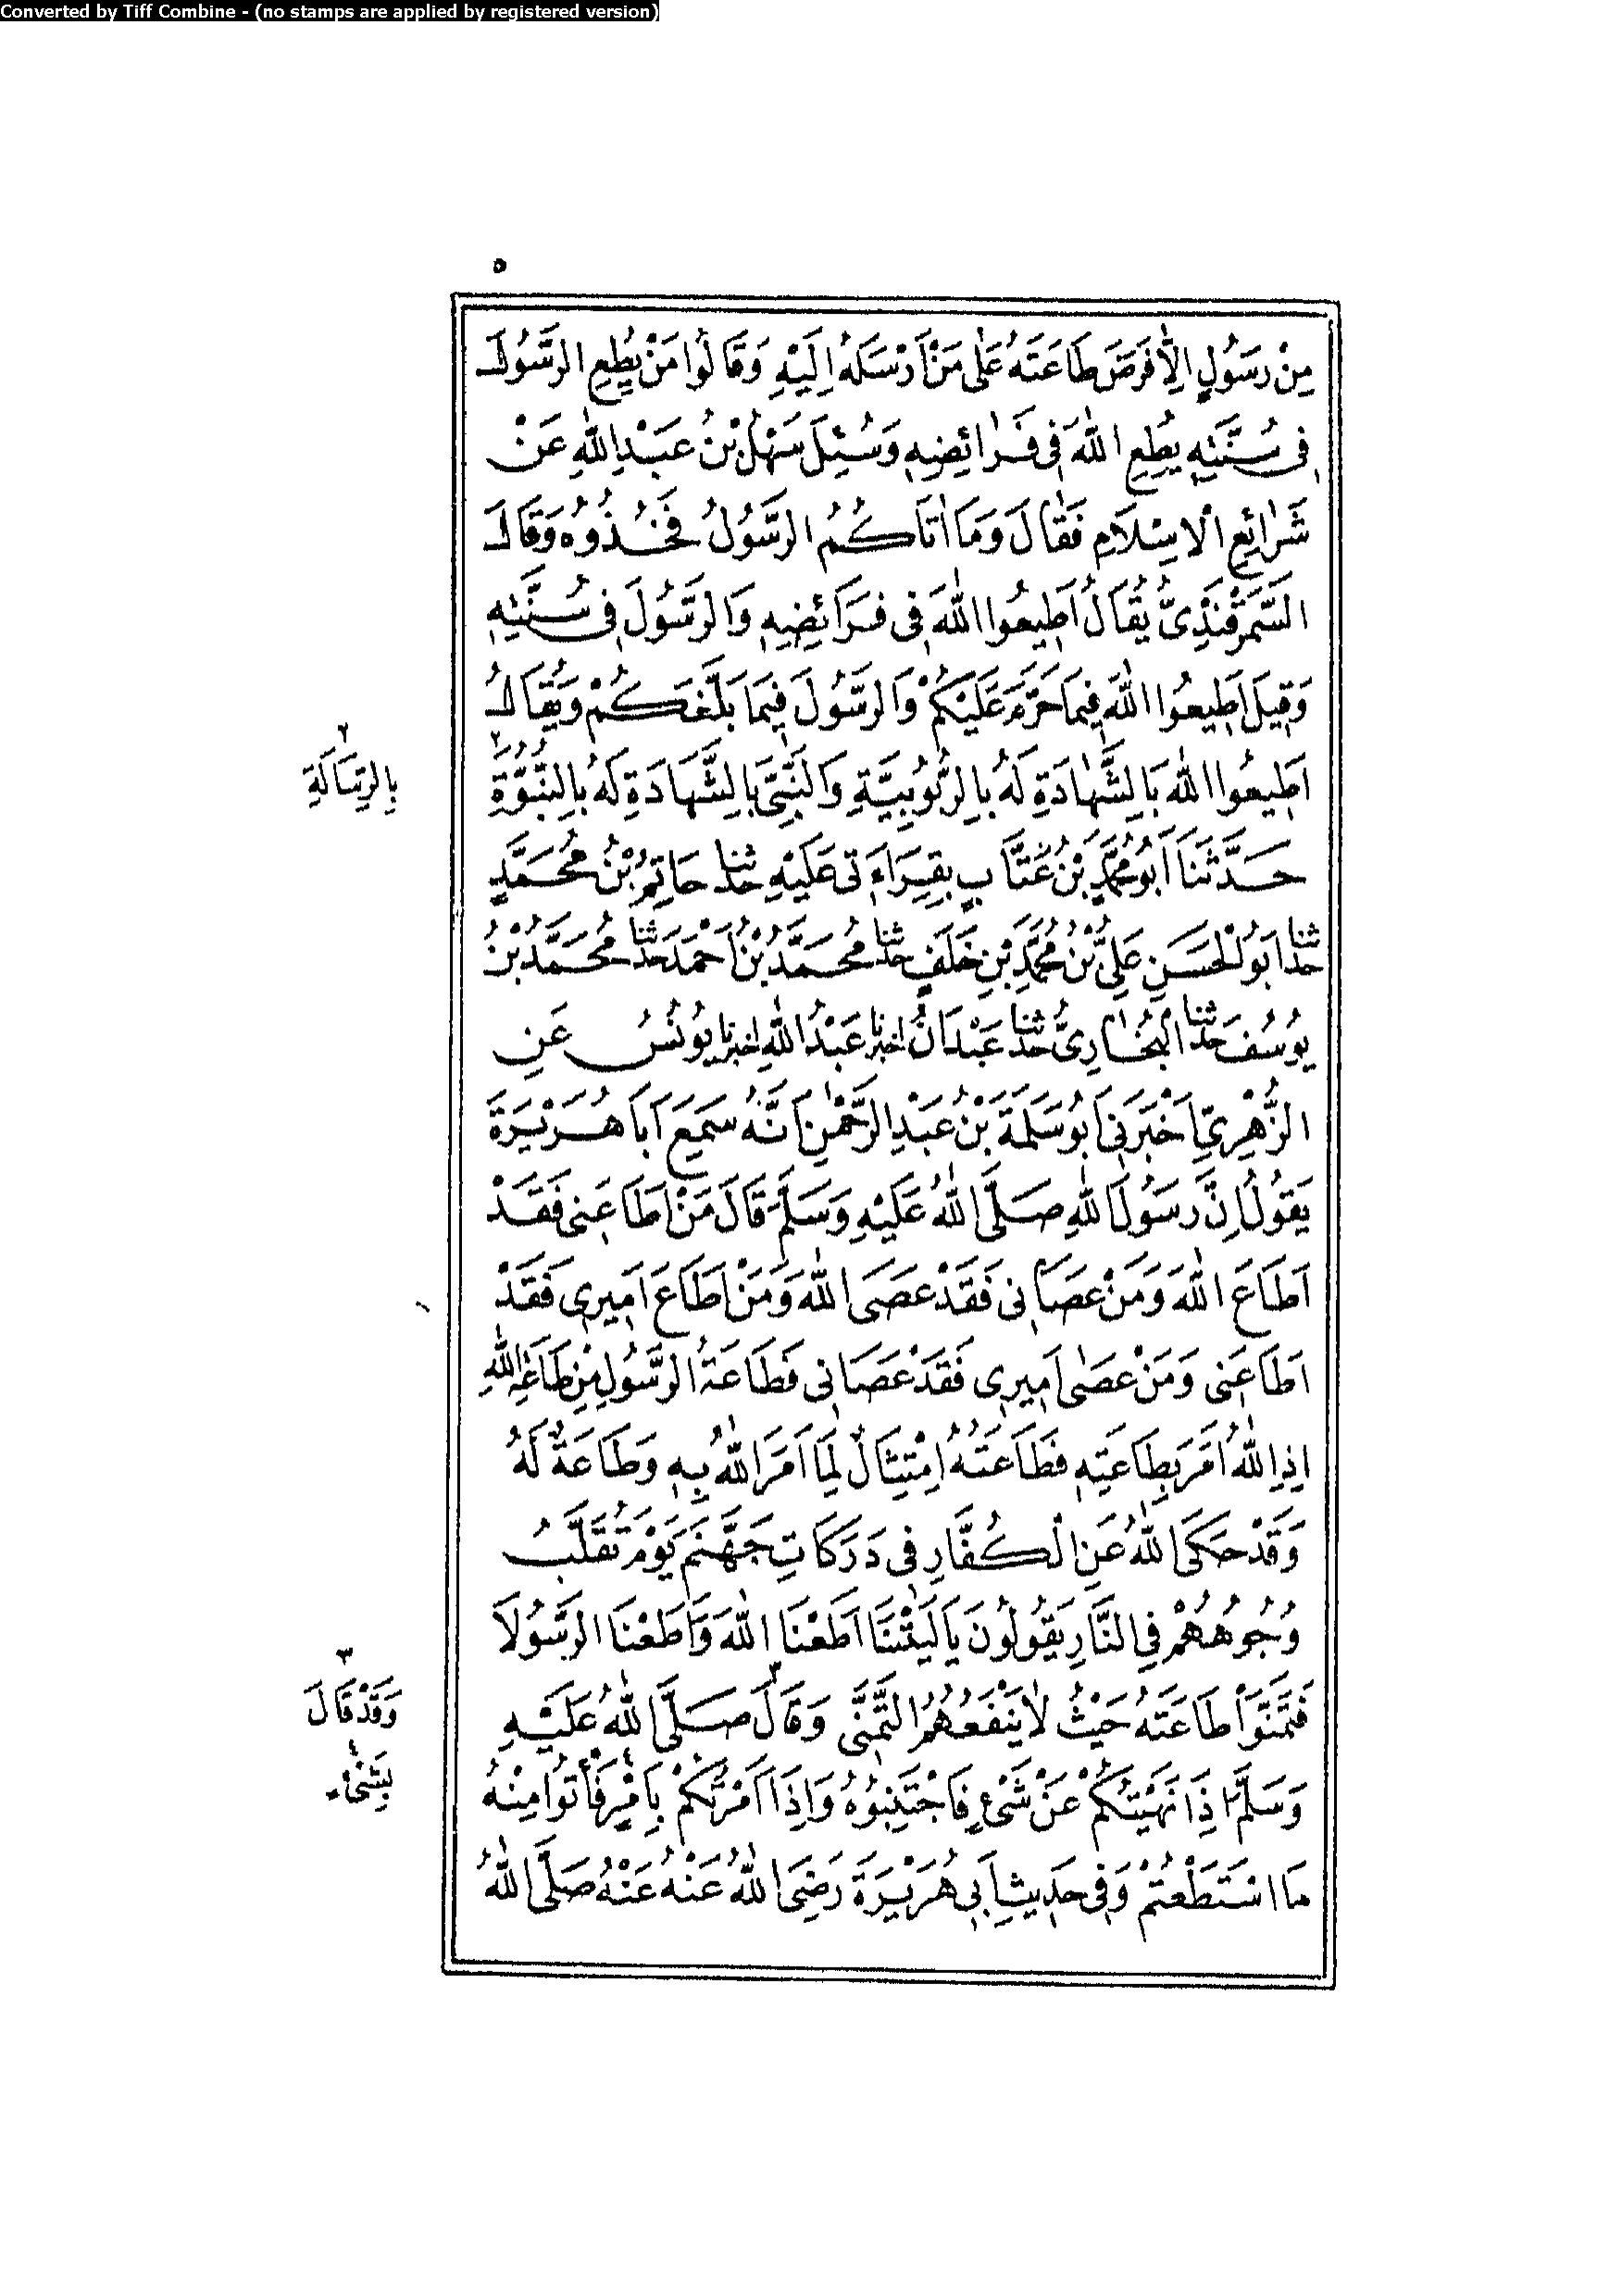 Converted by Tiff Combine - (no stamps are applied by registered version)
٥
مِنْ رَسُولٍ اِلَّا فَرَضَ طَاعَتَهُ عَلٰى مَنْ اَرْسَلَهُ اِلَيْهِ وَقَالُوا مَنْ يُطِعِ الرَّسُولَ
فِى سُنَّتِهِ يُطِعِ اللّٰهَ فِى فَرَائِضِهِ وَسُئِلَ سَهْلُ بْنُ عَبْدِ اللّٰهِ عَنْ
شَرَائِعِ الْاِسْلَامِ فَقَالَ وَمَا اٰتَاكُمُ الرَّسُولُ فَخُذُوهُ وَقَالَ
السَّمَرْقَنْدِىُّ يُقَالُ اَطِيعُوا اللّٰهَ فِى فَرَائِضِهِ وَالرَّسُولَ فِى سُنَّتِهِ
وَقِيلَ اَطِيعُوا اللّٰهَ فِيمَا حَرَّمَ عَلَيْكُمْ وَالرَّسُولَ فِيمَا بَلَّغَكُمْ وَيُقَالُ
اَطِيعُوا اللّٰهَ بِالشَّهَادَةِ لَهُ بِالرُّبُوبِيَّةِ وَالنَّبِىَّ بِالشَّهَادَةِ لَهُ بِالنُّبُوَّةِ ٢
٢
بِالرِّسَالَةِ
حَدَّثَنَا اَبُو مُحَمَّدِ بْنُ عَتَّابٍ بِقِرَاءَتِى عَلَيْهِ حدثنا حَاتِمُ بْنُ مُحَمَّدٍ
حدثنا اَبُو الْحَسَنِ عَلِىُّ بْنُ مُحَمَّدِ بْنِ خَلَفٍ حدثنا مُحَمَّدُ بْنُ اَحْمَدَ حدثنا مُحَمَّدُ بْنُ
يُوسُفَ حدثنا الْبُخَارِىُّ حدثنا عَبْدَانُ اخبرنا عَبْدُ اللّٰهِ اخبرنا يُونُسُ عَنِ
الزُّهْرِىِّ اَخْبَرَنِى اَبُو سَلَمَةَ بْنُ عَبْدِ الرَّحْمٰنِ اَنَّهُ سَمِعَ اَبَا هُرَيْرَةَ
يَقُولُ اِنَّ رَسُولَ اللّٰهِ صَلَّى اللّٰهُ عَلَيْهِ وَسَلَّمَ قَالَ مَنْ اَطَاعَنِى فَقَدْ
اَطَاعَ اللّٰهَ وَمَنْ عَصَانِى فَقَدْ عَصَى اللّٰهَ وَمَنْ اَطَاعَ اَمِيرِى فَقَدْ
اَطَاعَنِى وَمَنْ عَصٰى اَمِيرِى فَقَدْ عَصَانِى فَطَاعَةُ الرَّسُولِ مِنْ طَاعَةِ اللّٰهِ
اِذِ اللّٰهُ اَمَرَ بِطَاعَتِهِ فَطَاعَتُهُ اِمْتِثَالٌ لِمَا اَمَرَ اللّٰهُ بِهِ وَطَاعَةٌ لَهُ
وَقَدْ حَكَى اللّٰهُ عَنِ الْكُفَّارِ فِى دَرَكَاتِ جَهَنَّمَ يَوْمَ تُقَلَّبُ
وُجُوهُهُمْ فِى النَّارِ يَقُولُونَ يَا لَيْتَنَا اَطَعْنَا اللّٰهَ وَاَطَعْنَا الرَّسُولَا
فَتَمَنَّوْا طَاعَتَهُ حَيْثُ لَا يَنْفَعُهُمُ التَّمَنِّى ٣ وَقَالَ صَلَّى اللّٰهُ عَلَيْهِ
٣
وَقَدْ قَالَ
وَسَلَّمَ اِذَا نَهَيْتُكُمْ عَنْ شَىْءٍ فَاجْتَنِبُوهُ وَاِذَا اَمَرْتُكُمْ بِاَمْرٍ ٤ فَأْتُوا مِنْهُ
٤
بِشَىْءٍ
مَا اسْتَطَعْتُمْ وَفِى حَدِيثِ اَبِى هُرَيْرَةَ رَضِىَ اللّٰهُ عَنْهُ عَنْهُ صَلَّى اللّٰهُ